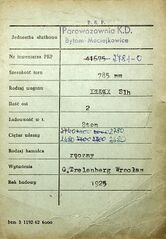 P. K. P.
Jednostka służbowa Parowozownia K.D.
Bytom Maciejkowice
Nr inwentarza PKP 41675 2781-0
Szerokość toru 785 mm
Rodzaj wagonu Sih
Ilość osi 2
Ładowność w t. 8ton
Ciężar własny 2480
Rodzaj hamulca ręczny
Wytwórnia G,Trelenberg Wrocław
Rok budowy 1925